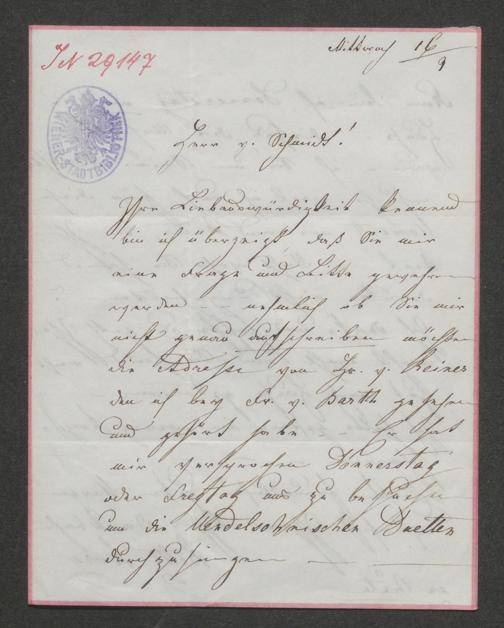 IN 29147
Mittwoch 16/9
WIENER STADTBIBLIOTHEK
Herr v. Schmidt!
Ihre Liebenswürdigkeit kennend
bin ich überzeigt, daß Sie mir
eine Frage und Bitte gewähren
werden – nehmlich ob Sie mir
nicht genau aufschreiben möchten
die Adresse von Hr. v. Reiner
den ich bey Fr. v. Barth gesehen
und gehört habe Er hat
mir versprochen Donnerstag
oder Freytag uns zu besuchen
um die Mendelsohnischen Duetten
durchzusingen